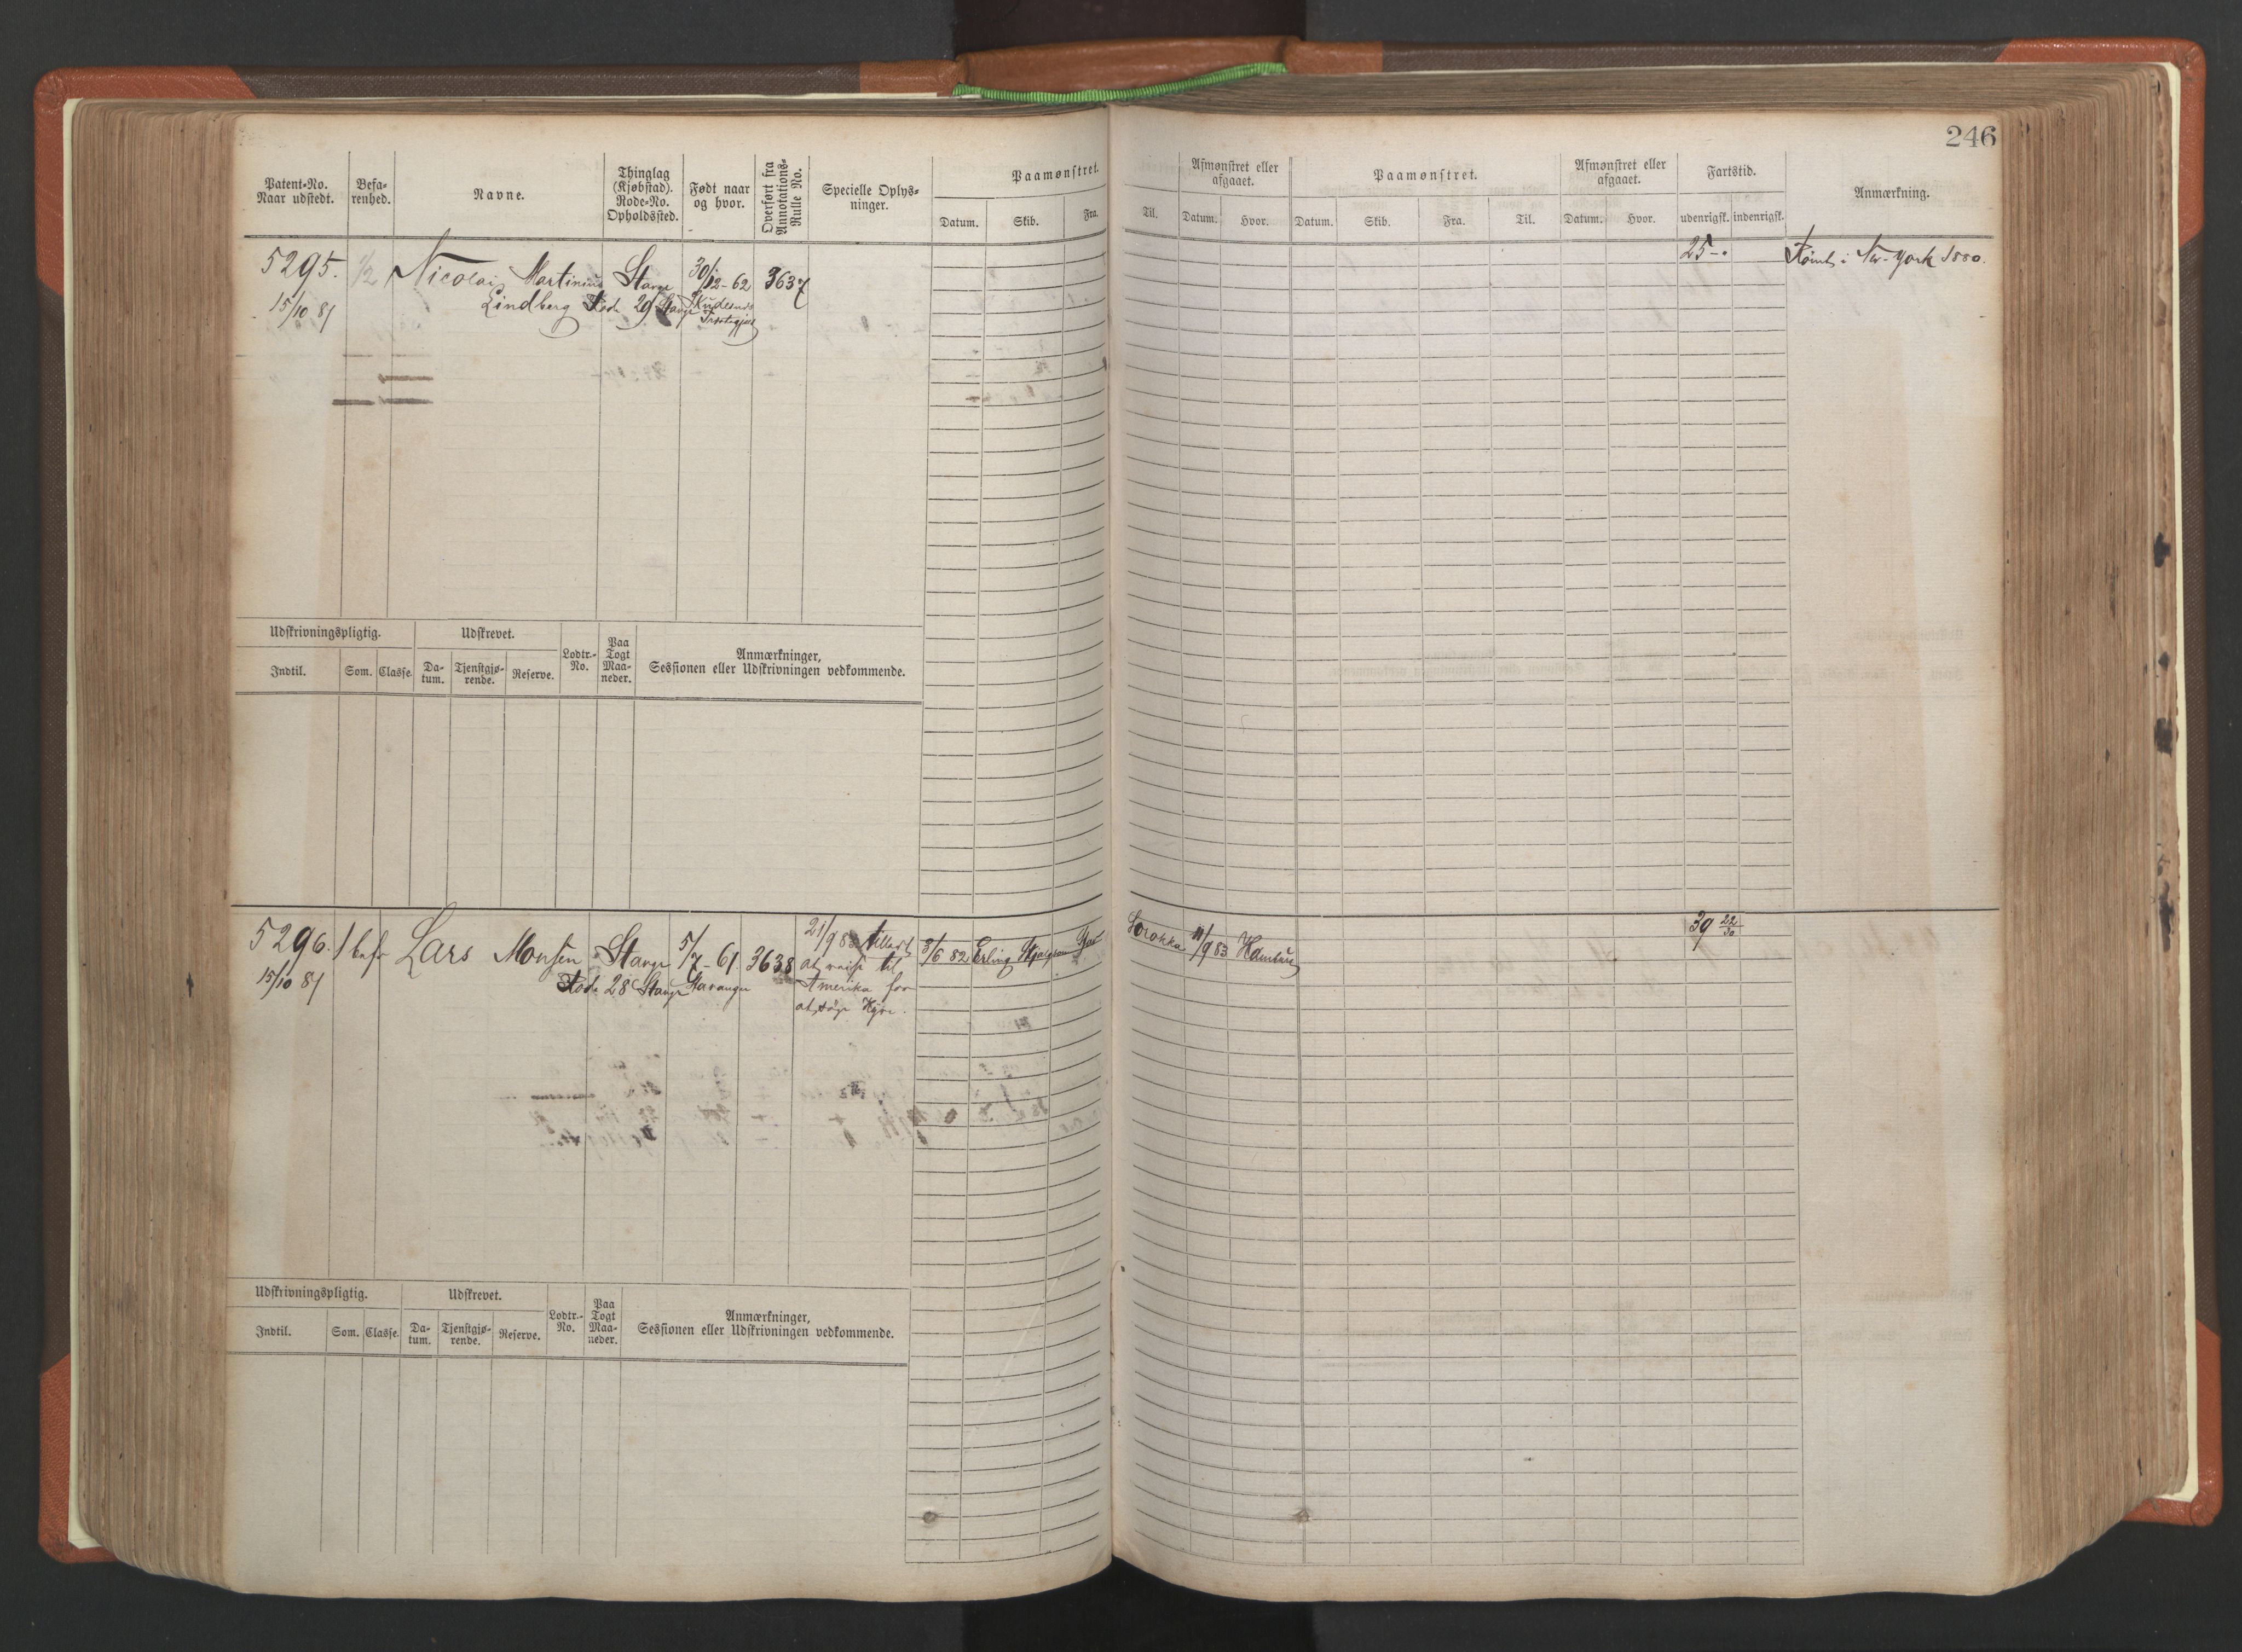 246
Patent-No. Naar udstedt. Befa-renhed. Navne. Thinglag (Kjøbstad). Rode-No. Opholdssted. Født naar og hvor. Overført fra Annotations-Rulle No. Specielle Oplys-ninger. Paamønstret. Afmønstret eller afgaaet. Paamønstret. Afmønstret eller afgaaet. Fartstid. Anmærkning.
Datum. Skib. Fra. Til. Datum. Hvor. Datum. Skib. Fra. Til. Datum. Hvor. udenrigsk. indenrigsk.
5295. 1/2 Nicolai Martinius Stavgr 30/12-62 3637 25-. Rømt i New-York 1880.
15/10 81 Lindberg Rode 29 Stavgr
Udskrivningspligtig. Udskrevet. Lodtr.-No. Paa Togt Maa-neder. Anmærkninger, Sessionen eller Udskrivningen vedkommende.
Indtil. Som. Classe. Da-tum. Tjenstgjø-rende. Reserve.
5296. 1 befr Lars Monsen Stavgr 5/7-61 3638 21/9 83 tilladt 3/6 82 Erling 11/9 83 Hamburg 39 22/30
15/10 81 Rode 28 Stavgr Stavanger at reise til
Amerika for
at søge Hyre.
Udskrivningspligtig. Udskrevet. Lodtr.-No. Paa Togt Maa-neder. Anmærkninger, Sessionen eller Udskrivningen vedkommende.
Indtil. Som. Classe. Da-tum. Tjenstgjø-rende. Reserve.